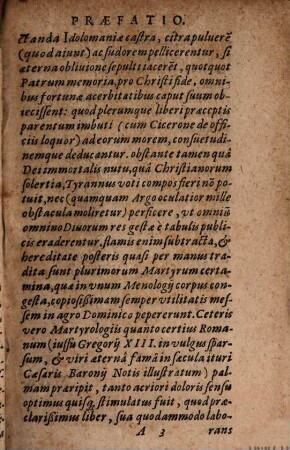 PRÆFATIO.
ctanda Idolomaniæ castra, citra puluerē
(quod aiunt) ac sudorem pellicerentur, si
æterna obliuione sepulti iacerēt, quotquot
Patrum memoria, pro Christi fide, omni-
bus fortunæ acerbitatibus caput suum ob-
iecissent: quod plerumque liberi præceptis
parentum imbuti (cum Cicerone de offi-
ciis loquor) ad eorum morem, consuetudi-
nemque deducantur. obstante tamen quâ
Dei immortalis nutu, quâ Christianorum
solertia, Tyrannus voti compos fieri nō po-
tuit, nec (quamquam Argo oculatior mille
obstacula moliretur) perficere, vt omniū
omnino Diuorum res gestæ è tabulis publi-
cis eraderentur. flamis enim subtracta, &
hereditate posteris quasi per manus tra-
dita sunt plurimorum Martyrum certa-
mina, quæ in vnum Menologij corpus con-
gesta, copiosißimam semper vtilitatis mes-
sem in agro Dominico pepererunt. Ceteris
vero Martyrologiis quanto certius Roma-
num (iussu Gregorij XIII. in vulgus spar-
sum, & viri æternâ famâ in sæcula ituri
Cæsaris Baronij Notis illustratum) pal-
mam præripit, tanto acriori doloris sensu
optimus quisq, stimulatus fuit, quod præ-
clarißimus liber, sua quodammodo labo-
A 3 rans